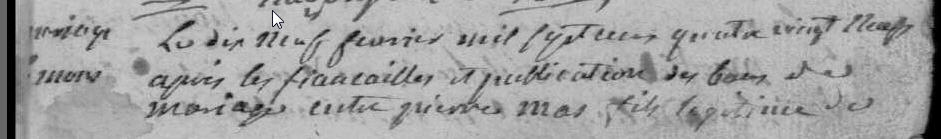 mariage Le dix neuf fevrier mil sept cens quatre vingt neuf
mons apres les fiancailles et publication des bans de
mariage entre pierre mas fils legitime de